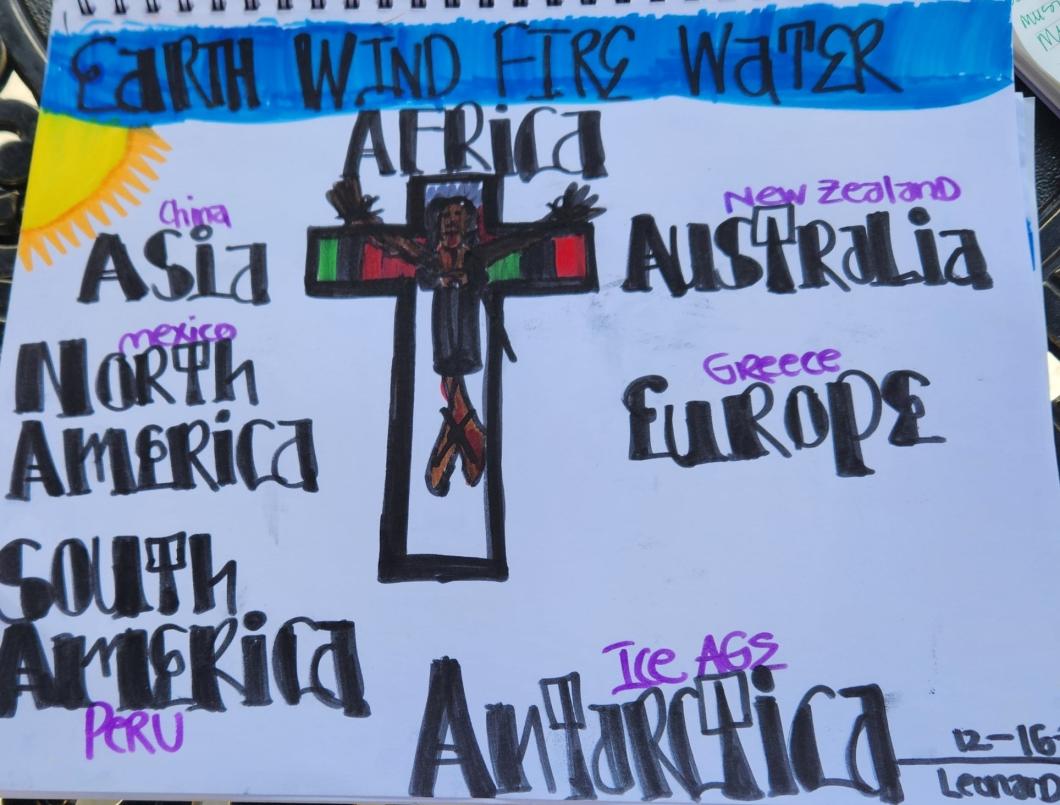 EARTH WIND FIRE WATER
AFRICA
China
ASia
New Zealand
AUSTRaLia
mexico
NORTh
AMERiCa
Greece
EUROPE
SOUTh
AMERiCa
PERU
Ice AGE
AnTaRCTiCa
12-16-
Leonard